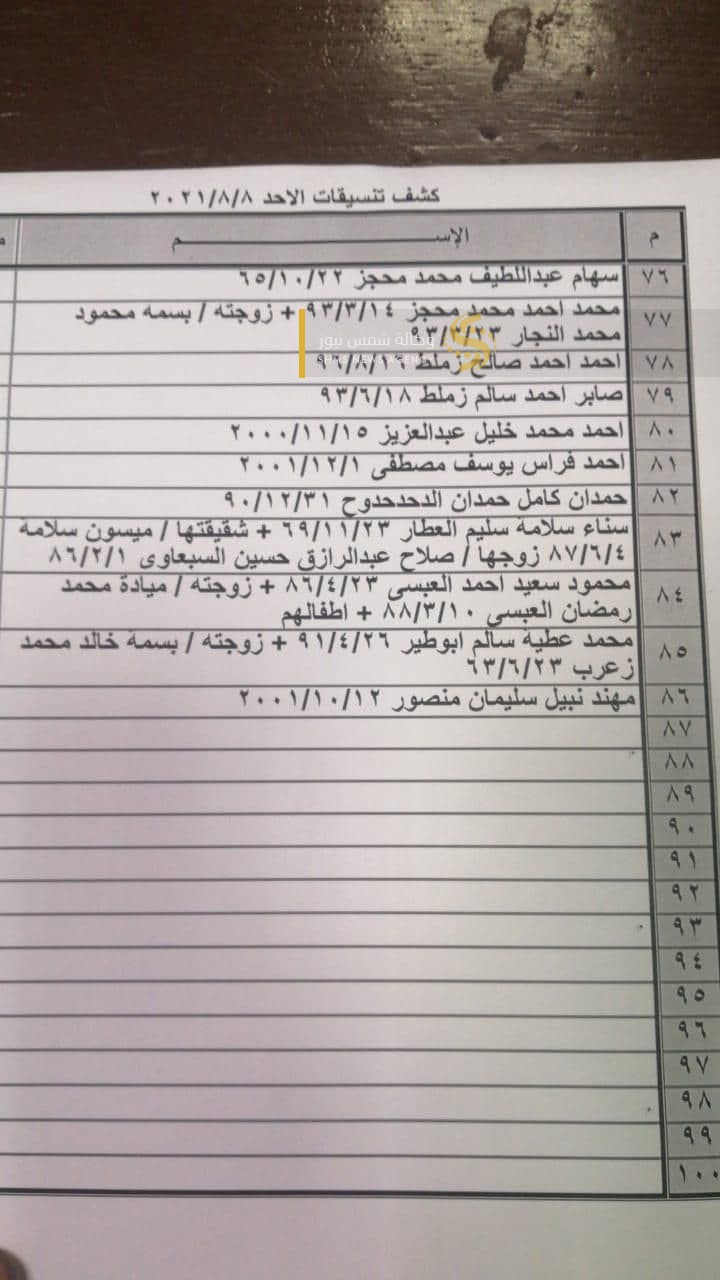 كشف تنسيقات الاحد ٢٠٢١/٨/٨
م الإســـــــم
٧٦ سهام عبداللطيف محمد محجز ٦٥/١٠/٢٢
٧٧ محمد احمد محمد محجز ٩٣/٣/١٤ + زوجته / بسمه محمود
محمد النجار ٩٣/٣/٢٣
وكالة شمس نيوز
SHMS NEWS AGENCY
٧٨ احمد احمد صالح زملط ٩٦/٨/١٦
٧٩ صابر احمد سالم زملط ٩٣/٦/١٨
٨٠ احمد محمد خليل عبدالعزيز ٢٠٠٠/١١/١٥
٨١ احمد فراس يوسف مصطفى ٢٠٠١/١٢/١
٨٢ حمدان كامل حمدان الدحدحدوح ٩٠/١٢/٣١
٨٣ سناء سلامة سليم العطار ٦٩/١١/٢٣ + شقيقتها / ميسون سلامة
٨٧/٦/٤ زوجها / صلاح عبدالرازق حسين السبعاوى ٨٦/٢/١
٨٤ محمود سعيد احمد العبسي ٨٦/٤/٢٣ + زوجته / ميادة محمد
رمضان العبسي ٨٨/٣/١٠ + اطفالهم
٨٥ محمد عطية سالم ابوطير ٩١/٤/٢٦ + زوجته / بسمة خالد محمد
زعرب ٦٣/٦/٢٣
٨٦ مهند نبيل سليمان منصور ٢٠٠١/١٠/١٢
٨٧
٨٨
٨٩
٩٠
٩١
٩٢
٩٣
٩٤
٩٥
٩٦
٩٧
٩٨
٩٩
١٠٠